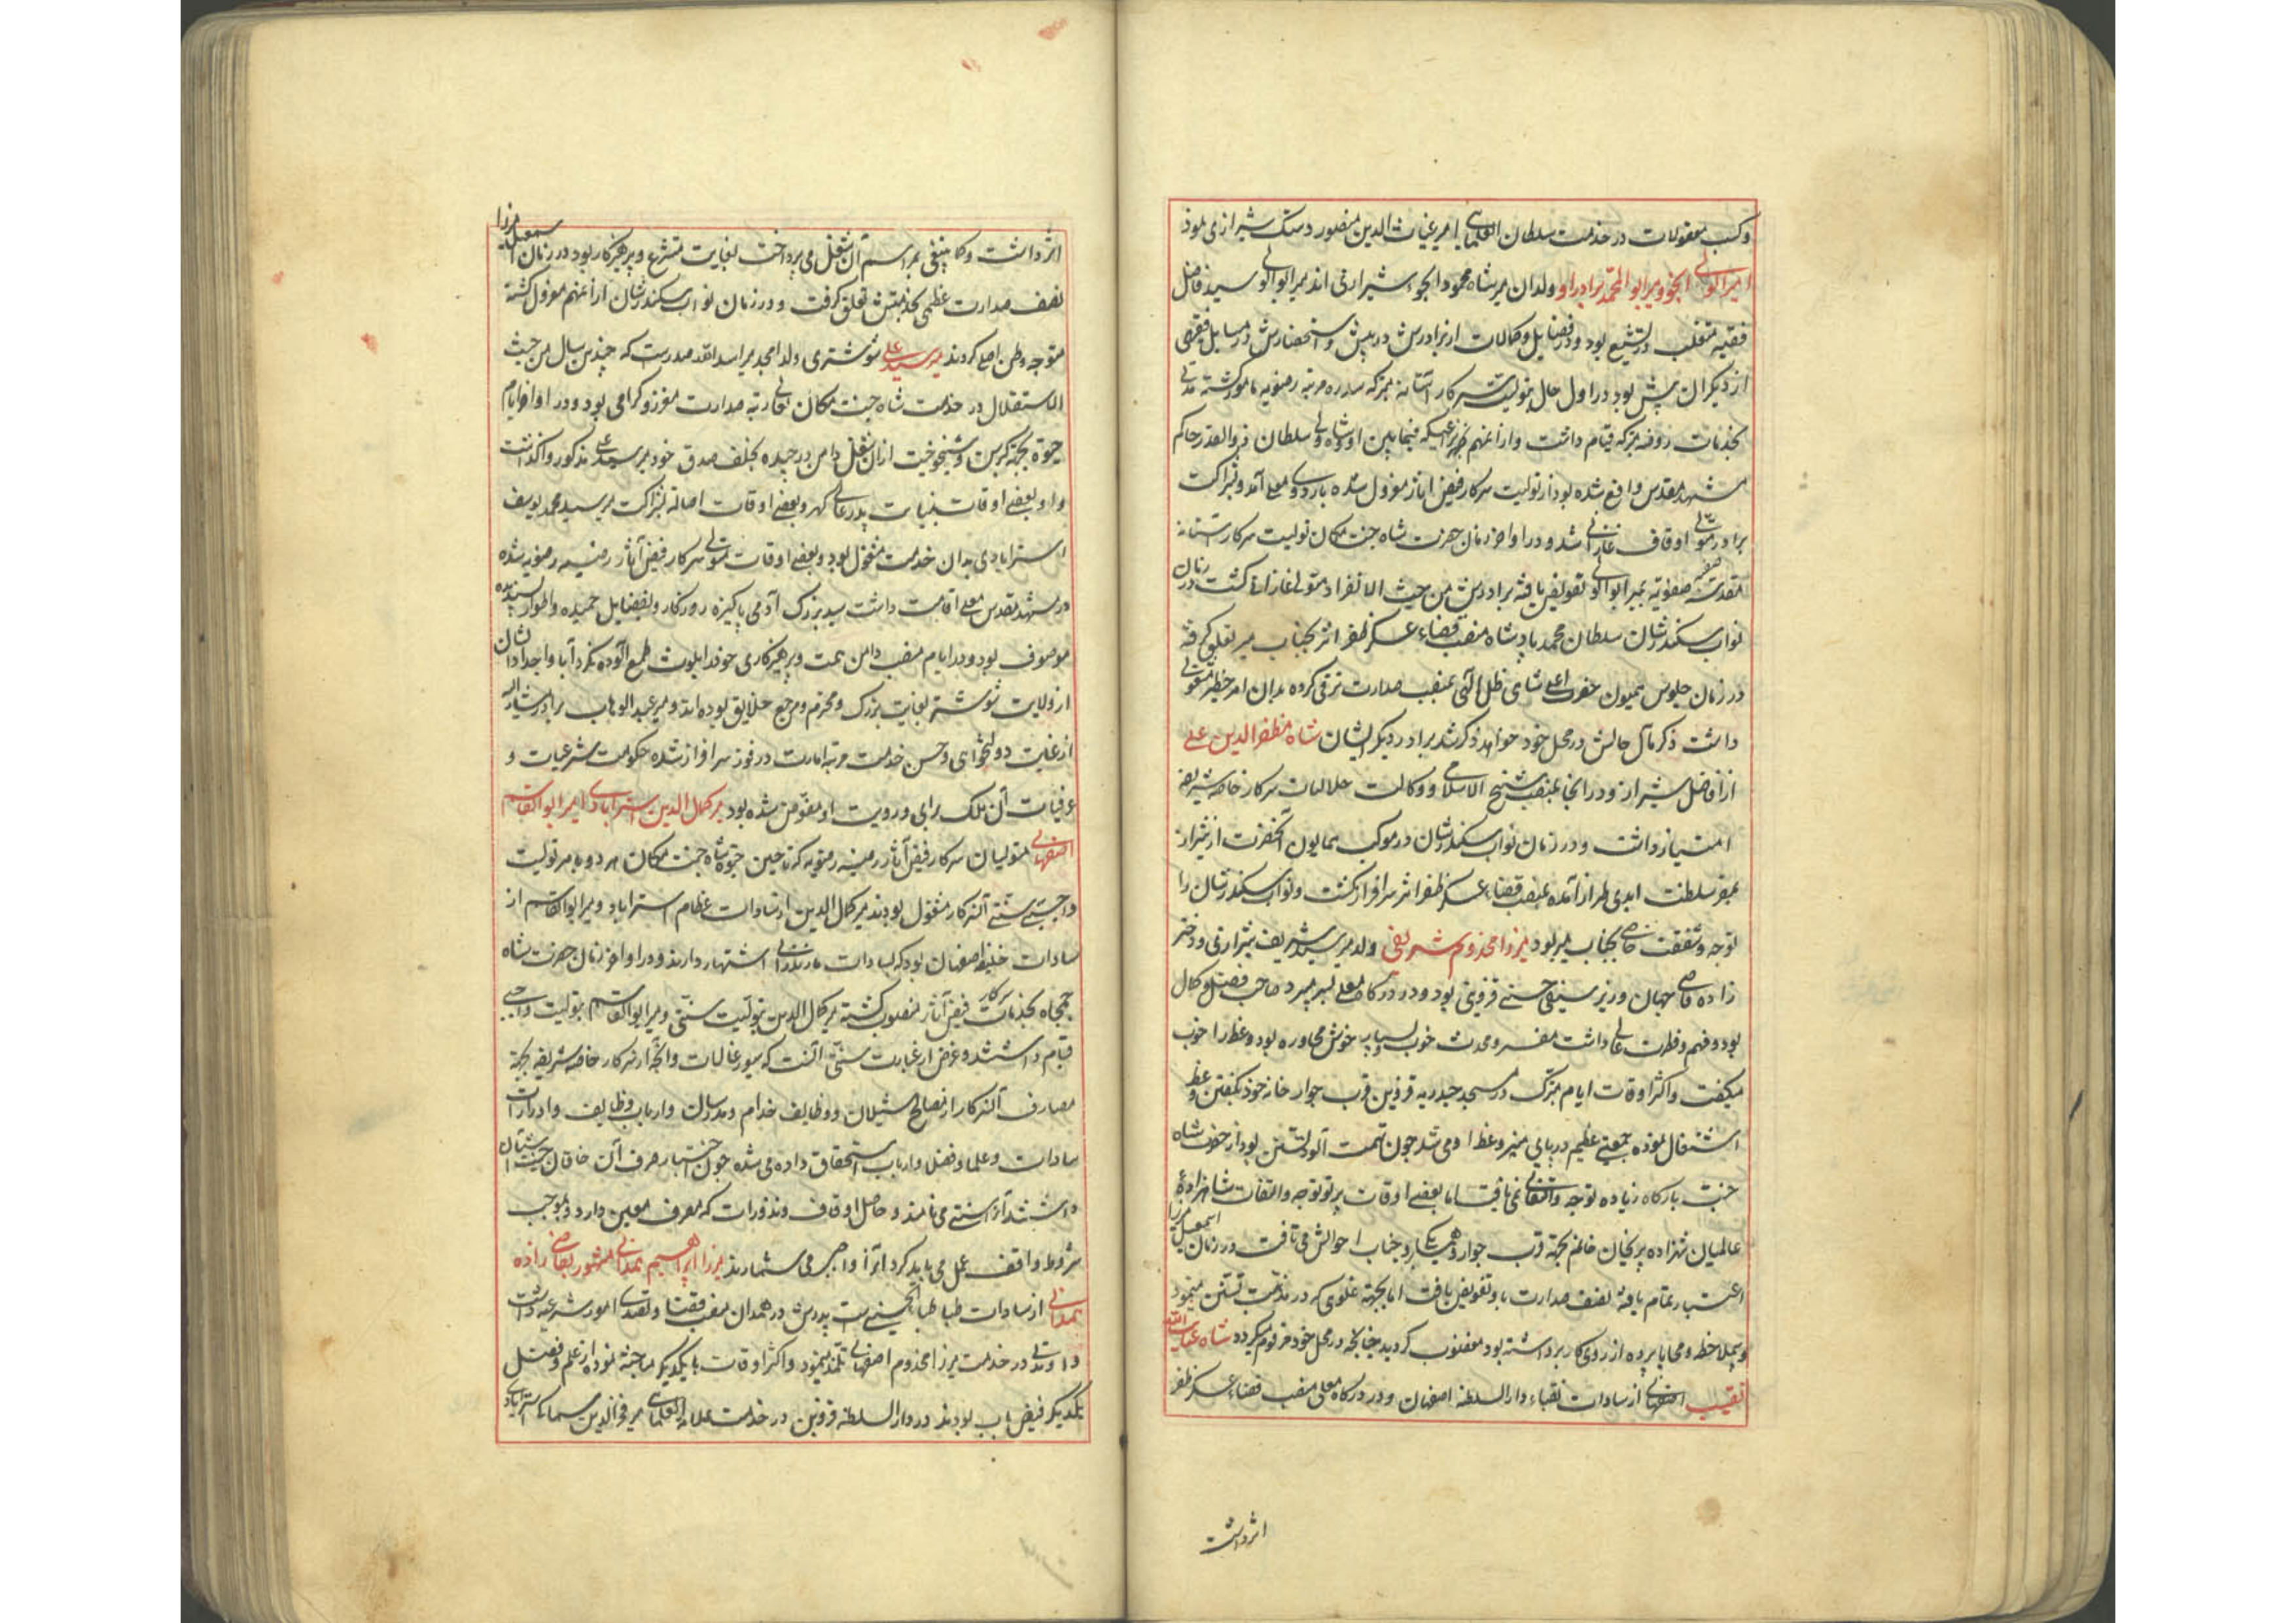 و کسب معقولات در خدمت سلطان العلمایی امیر غیاث الدین منصور دشتکی شیرازی نموده
امیر ابوالولی انجو و میر ابوالمحمد برادر او ولدان میر شاه محمود انجو شیرازی اند میر ابوالولی سید فاضل
فقیه متصلب در تشیع بود و در فضایل و کمالات از برادرش در پیش و استحضارش در مسایل فقهی
از دیگران بیش بود در اول حال بتولیت سرکار آستانه متبرکه سدره مرتبه رضویه مامور گشته مدتی
بخدمات روضه متبرکه قیام داشت و از آنهم بنزاعیکه فیمابین او و شاه ولی سلطان ذوالقدر حاکم
مشهد مقدس واقع شده بود از تولیت سرکار فیض آثار معزول شده باردوی معلی آمد و بشراکت
برادر متولی اوقاف غازانی شد و در اواخر زمان حضرت شاه جنت مکان تولیت سرکار آستانه
مقدسه صفیه صفویه بمیر ابوالولی تفویض یافته برادرش من حیث الانفراد متولی غازانی گشت در زمان
نواب سکندر شان سلطان محمد پادشاه منصب قضاء عسکر ظفر اثر بجناب میر تعلق گرفته
در زمان جلوس همیون حضرت اعلی شاهی ظل الهی بمنصب صدارت ترقی کرده بدان امر خطیر مشغولی
داشت ذکر مآل حالش در محل خود خواهد ذکر شد برادر دیگر ایشان شاه مظفرالدین علی
از افاضل شیراز و در آنجا بمنصب شیخ الاسلامی و وکالت حلالیات سرکار خاصه شریفه
امتیاز داشت و در زمان نواب سکندر شان در موکب همایون آنحضرت از شیراز
بمقر سلطنت ابدی طراز آمده بمنصب قضاء عسکر ظفر اثر سرافراز گشت و نواب سکندر شان را
توجه و شفقت خاصی بجناب میر بود میرزا مخدوم شریفی ولد میر سید شریف شیرازی و دختر
زاده قاضی جهان وزیر سیفی حسنی قزوینی بود و در درگاه معلی بسر میبرد صاحب فضل و کمال
بود و فهم و فطرت عالی داشت مفسر و محدث خوب و بسیار خوش محاوره بود وعظ را خوب
میگفت و اکثر اوقات ایام متبرک در مسجد حیدریه قزوین قرب جوار خانه خود بگفتن وعظ
اشتغال نموده جمعیتی عظیم در پای منبر وعظ او می شد چون تهمت آلود تسنن بود از حضرت شاه
جنت بارگاه زیاده توجه و التفاتی نمی یافت اما بعضی اوقات پرتو توجه و التفات شاهزاده
عالمیان شهزاده پریخان خانم بجهة قرب جوار و همسایگی بر وجنات احوالش می تافت در زمان اسمعیل میرزا
اعتبار تمام یافته نصف صدارت باو تفویض یافت اما بجهة غلوی که در مذهب تسنن مینمود
و بیملاحظه و محابا پرده از روی کار برداشته بود مغضوب گردید چنانچه در محل خود مرقوم میگردد شاه عنایت الله
نقیب اصفهانی از سادات نقباء دارالسلطنه اصفهان و در درگاه معلی منصب قضاء عسکر ظفر
اثر داشت
اثر داشت و کما ینبغی بمراسم آن شغل می پرداخت بغایت متشرع و پرهیزکار بود در زمان اسمعیل میرزا
نصف صدارت عظمی بخدمتش تعلق گرفت و در زمان نواب سکندر شان از آنهم معزول گشته
متوجه وطن اصلی گردید میر سید علی شوشتری ولد امجد میر اسدالله صدرست که چندین سال من حیث
الاستقلال در خدمت شاه جنت مکان بعالی رتبه صدارت معزز و گرامی بود و در اواخر ایام
حیوة بجهة کبر سن و شیخوخیت از آن شغل دامن در چیده بخلف صدق خود میر سید علی مذکور واگذاشت
و او بعضی اوقات بنیابت پدر عالی گهر و بعضی اوقات اصالة بشراکت میر سید محمد یوسف
استرابادی بدان خدمت مشغول بود و بعضی اوقات متولی سرکار فیض آثار رضیه رضویه شده
در مشهد مقدس معلی اقامت داشت سید بزرگ آدمی پاکیزه روزگار و بفضایل حمیده و اطوار پسندیده
موصوف بود و در ایام منصب دامن همت و پرهیزکاری خود را بلوث طمع آلوده نکرد آبا و اجداد ایشان
از ولایت شوشتر بغایت بزرگ و محترم و مرجع خلایق بوده اند و میر عبدالوهاب برادر مشارالیه
از غایت دولتخواهی و حسن خدمت مرتبه امارت درفوز سرافراز شده حکومت شرعیات و
عرفیات آن ملک برای و رویت او مفوض شده بود میر کمال الدین استرابادی امیر ابوالقاسم
اصفهانی متولیان سرکار فیض آثار رضیه رضویه که تا حین حیوة شاه جنت مکان هر دو بامر تولیت
واجبی و سنتی آنسرکار مشغول بودند میر کمال الدین از سادات عظام استراباد و میر ابوالقاسم از
سادات خلیفه اصفهان بود که بسادات مازندرانی اشتهار دارند و در اواخر زمان حضرت شاه
جمجاه بخدمات سرکار فیض آثار منصوب گشته میر کمال الدین بتولیت سنتی و میر ابوالقاسم بتولیت واجبی
قیام داشتند و غرض از عبارت سنتی آنست که سیورغالات و آنچه از سرکار خاصه شریفه بجهة
مصارف آنسرکار از مصالح شیلان و وظایف خدام و مدرسان و ارباب وظایف و ادرارات
سادات و علما و فضلا و ارباب استحقاق داده می شده چون اختیار صرف آن خاقان جنت آشیان
داشتند آنرا سنتی می نامند و حاصل اوقاف و نذورات که مصرف معین دارد و بموجب
شروط واقف عمل می باید کرد آنرا واجبی می شمارند میرزا ابراهیم همدانی مشهور بقاضی زاده
همدانی از سادات طباطبا الحسنی ست پدرش در همدان منصب قضا و تصدی امور شرعیه داشت
و او مدتی در خدمت میرزا مخدوم اصفهانی تلمذ مینمود و اکثر اوقات با یکدیگر مباحثه نموده از علم و فضل
یکدیگر فیض یاب بودند در دارالسلطنه قزوین در خدمت علامة العلمایی میر فخرالدین سماکی استرابادی